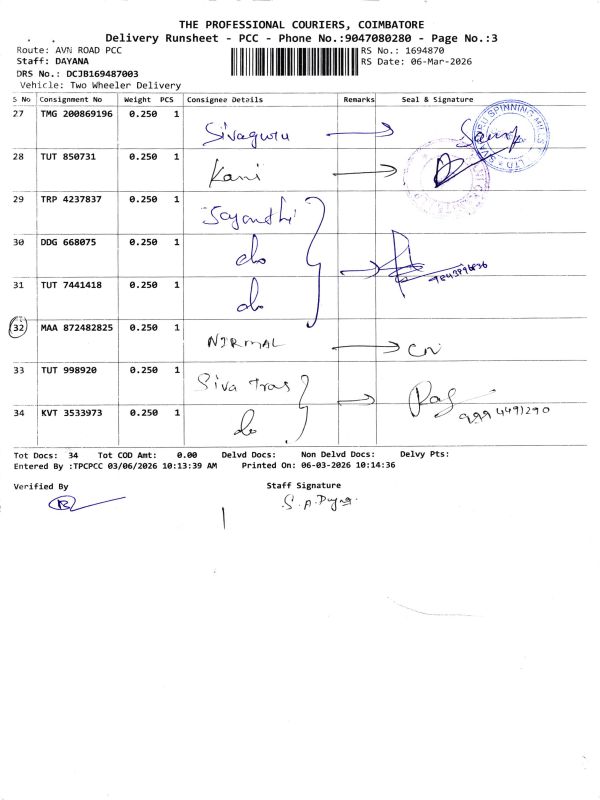 THE PROFESSIONAL COURIERS, COIMBATORE
Delivery Runsheet - PCC - Phone No.:9047080280 - Page No.:3
Route: AVN ROAD PCC
RS No.: 1694870
Staff: DAYANA
RS Date: 06-Mar-2026
DRS No.: DCJB169487003
Vehicle: Two Wheeler Delivery
S No Consignment No Weight PCS Consignee Details Remarks Seal & Signature
27 TMG 200869196 0.250 1 Sivaguru
28 TUT 850731 0.250 1 Kani
29 TRP 4237837 0.250 1 Jayanthi
30 DDG 668075 0.250 1 do
31 TUT 7441418 0.250 1 do
32 MAA 872482825 0.250 1 NIRMAL
33 TUT 998920 0.250 1 Siva Tras
34 KVT 3533973 0.250 1 do
Tot Docs: 34 Tot COD Amt: 0.00 Delvd Docs: Non Delvd Docs: Delvy Pts:
Entered By :TPCPCC 03/06/2026 10:13:39 AM Printed On: 06-03-2026 10:14:36
Verified By Staff Signature
S. A. Dayana